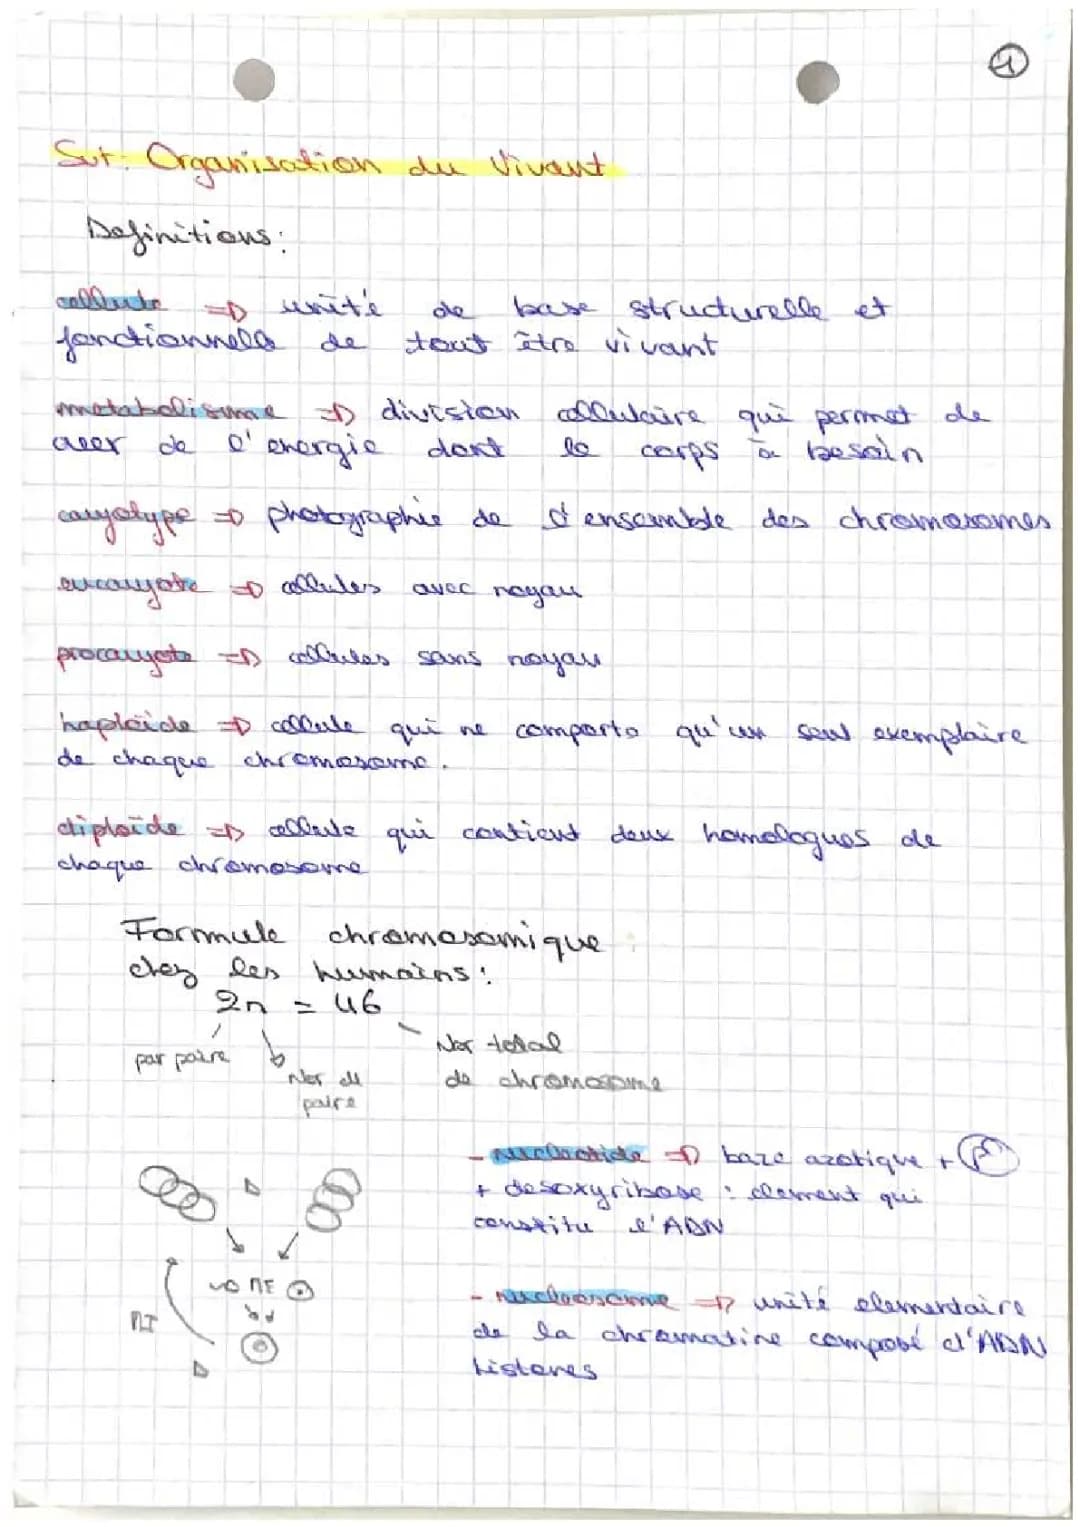 1
Svt: Organisation du Vivant
Definitions:
cellule => unité de base structurelle et
fonctionnelle de tout être vivant
metabolisme => division cellulaire qui permet de
creer de l'energie dont le corps à besoin
caryotype => photographie de l'ensemble des chromosomes
eucaryote => cellules avec noyau
procaryote => cellules sans noyau
haploïde => cellule qui ne comporte qu'un seul exemplaire
de chaque chromosome.
diploïde => cellule qui contient deux homologues de
chaque chromosome
Formule chromosomique :
chez les humains :
2n = 46
par paire
Nbr de
paire
Nbr total
de chromosome
- nucleotide => baze azotique + P
+ desoxyribose : element qui
constitu l'ADN
ME
MI
- nucleosome => unité elementaire
de la chromatine composé d'ADN
histones